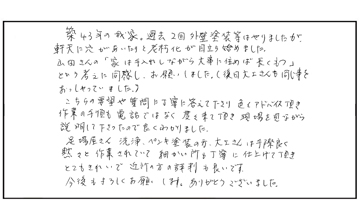 築43年の我家。過去2回外壁塗装等はやりましたが、
軒天に穴があいたりと老朽化が目立ち始めました。
山田さんの「家は手入れしながら大事に住めば長くもつ」
という考えに同感し、お願いしました。(後日大工さんも同じ事を
おっしゃっていました。)
こちらの要望や質問に丁寧に答えて下さり、色々アドバイス頂き
作業の手順も電話ではなく、度々来て頂き現場を見ながら
説明して下さったので良くわかりました。
足場屋さん、洗浄、ペンキ塗装の方、大工さんは手際良く
黙々と作業されていて、細かい所も丁寧に仕上げて頂き
とてもきれいで近所の方の評判も良いです。
今後もよろしくお願いします。ありがとうございました。